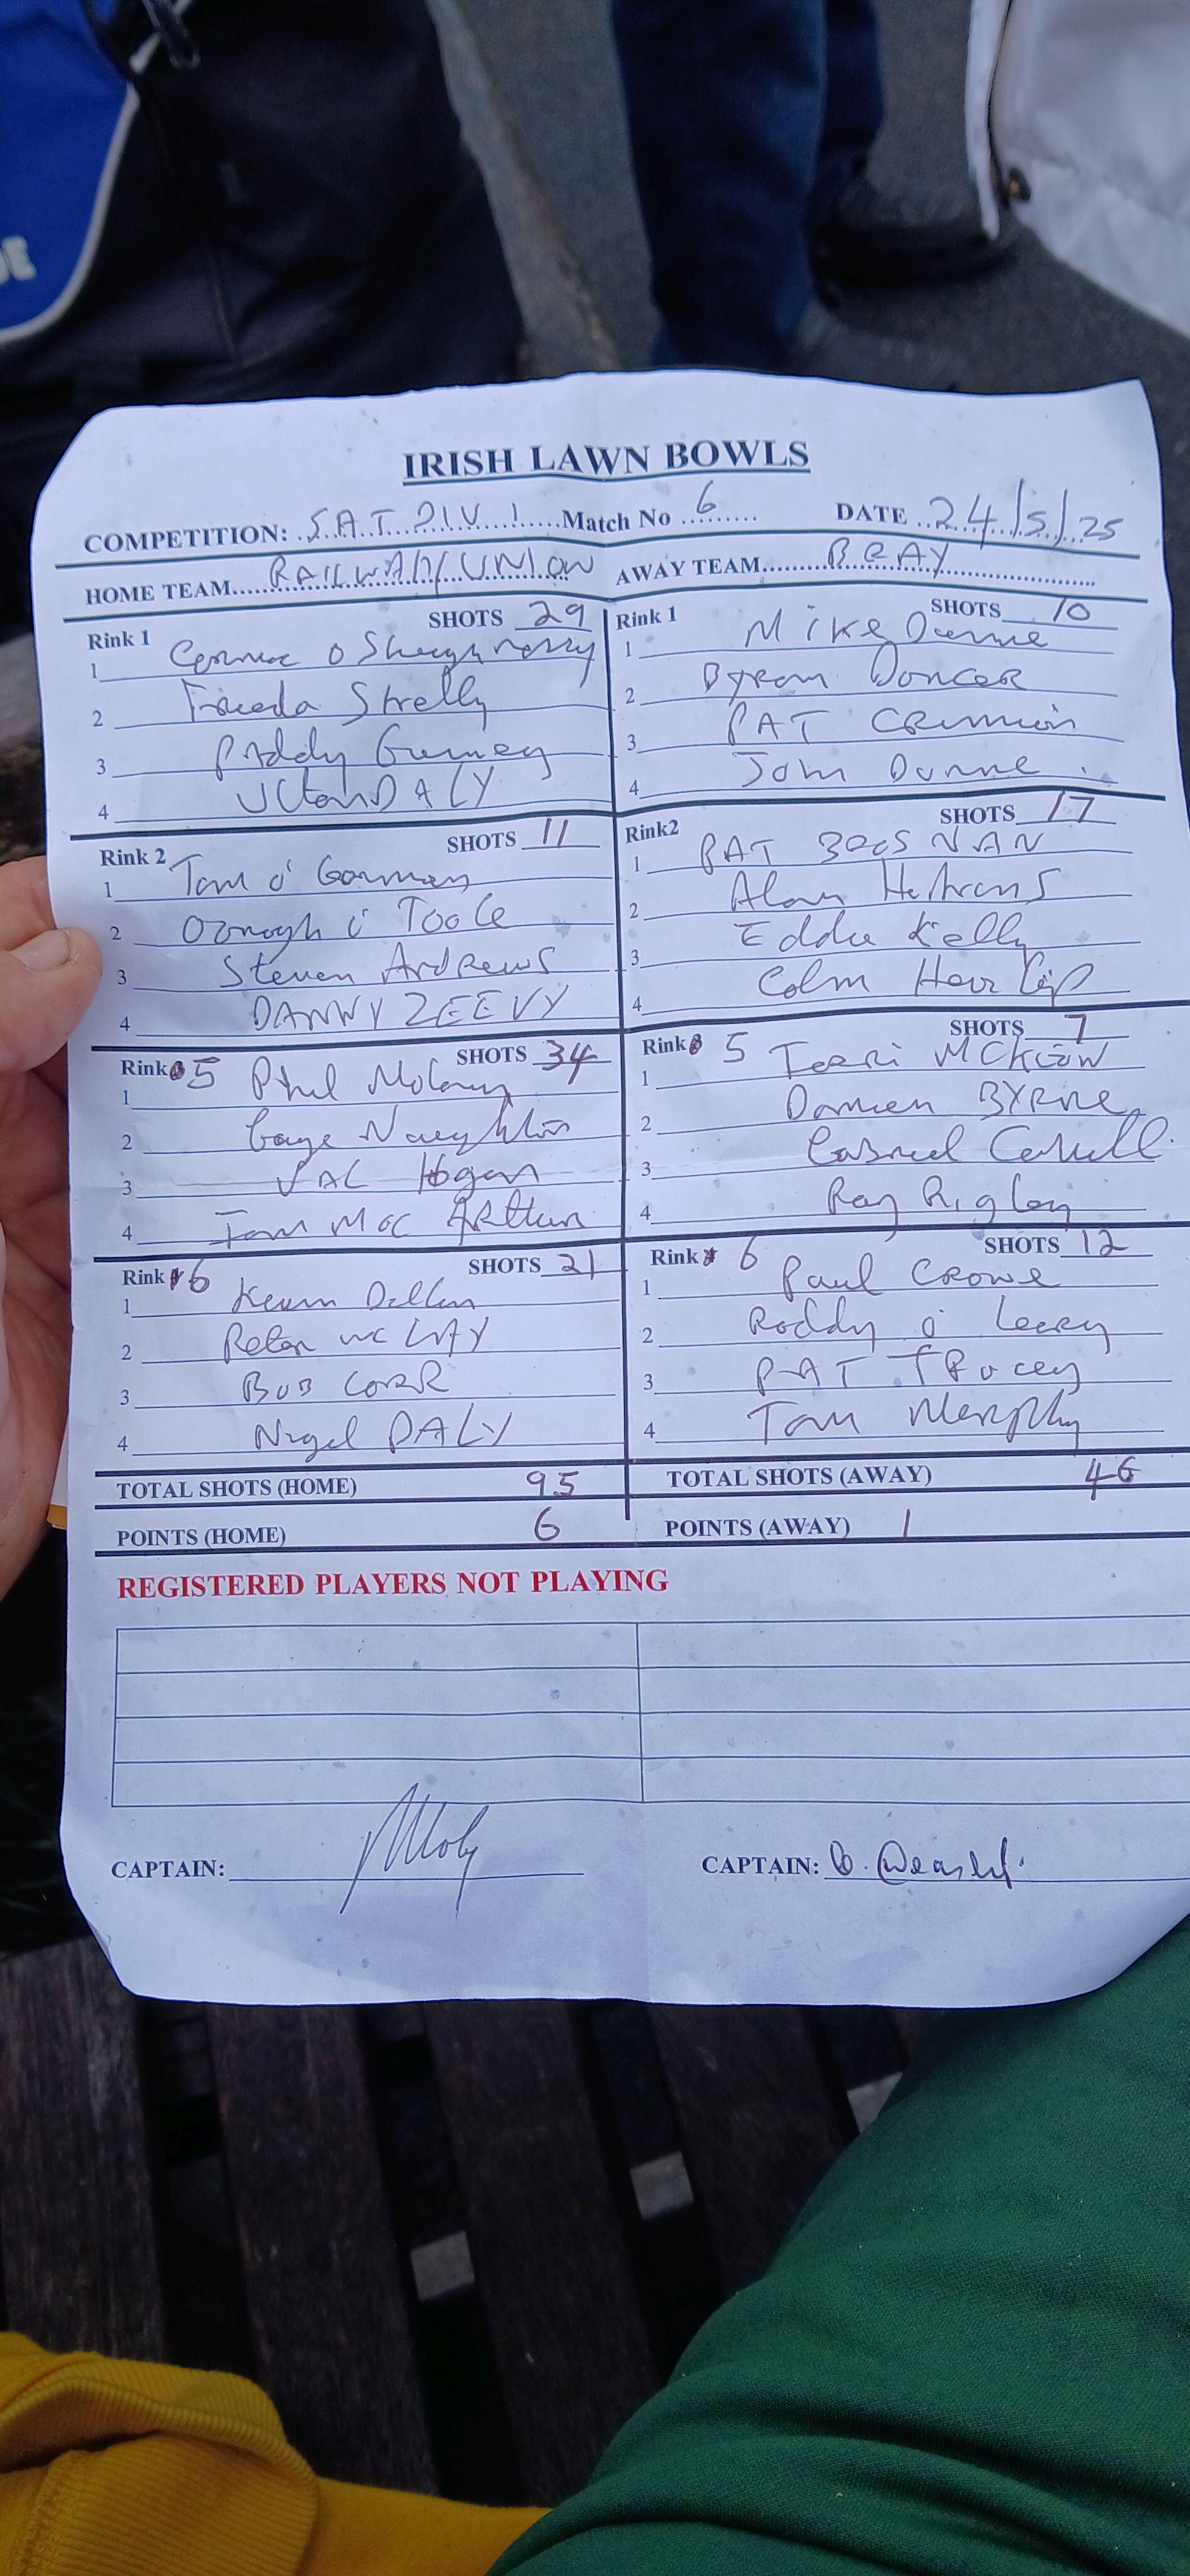 IRISH LAWN BOWLS
COMPETITION: SAT DIV 1 Match No 6 DATE 24/5/25
HOME TEAM RAILWAY UNION AWAY TEAM BRAY
Rink 1 SHOTS 29
1 O Shaughnessy
2 Frieda
3 Paddy
4 DALY
Rink 1 SHOTS 10
1 Mike Dunne
2 Byron
3 PAT
4 John Dunne
Rink 2 SHOTS 11
1 Tom O' Gorman
2 Oonagh O' Toole
3 Steven Andrews
4 DANNY ZEEVY
Rink2 SHOTS 17
1 PAT
2 Alan
3 Eddie Kelly
4 Colm
Rink 5 SHOTS 34
1 Phil
2 Naughton
3 VAL Hogan
4 Mac Arthur
Rink 5 SHOTS 7
1 Terri
2 Damien BYRNE
3 Gabriel
4 Ray
Rink 6 SHOTS 21
1 Kevin Dillon
2 Peter
3 BOB CORR
4 Nigel DALY
Rink 6 SHOTS 12
1 Paul Crowe
2 Roddy O' Leary
3 PAT Tracey
4 Tom Murphy
TOTAL SHOTS (HOME) 95 TOTAL SHOTS (AWAY) 46
POINTS (HOME) 6 POINTS (AWAY) 1
REGISTERED PLAYERS NOT PLAYING
CAPTAIN: CAPTAIN: